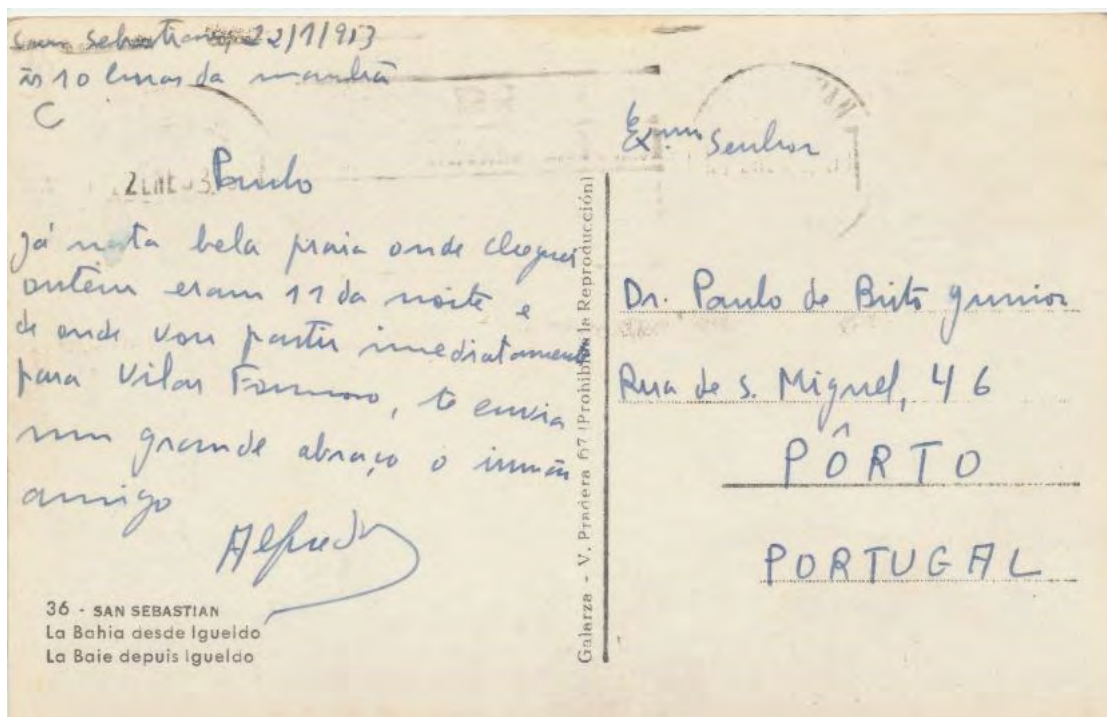 San Sebastian, 22/1/953
às 10 horas da manhã
Paulo
Já nesta bela praia onde cheguei
ontem eram 11 da noite e
de onde vou partir imediatamente
para Vilar Formoso, te envia
um grande abraço o irmão
amigo
Alfredo
36 - SAN SEBASTIAN
La Bahia desde Igueldo
La Baie depuis Igueldo
Galarza - V. Pradera 67 (Prohibida la Reproducción)
Exmo Senhor
Dr. Paulo de Brito Junior
Rua de S. Miguel, 46
PÔRTO
PORTUGAL